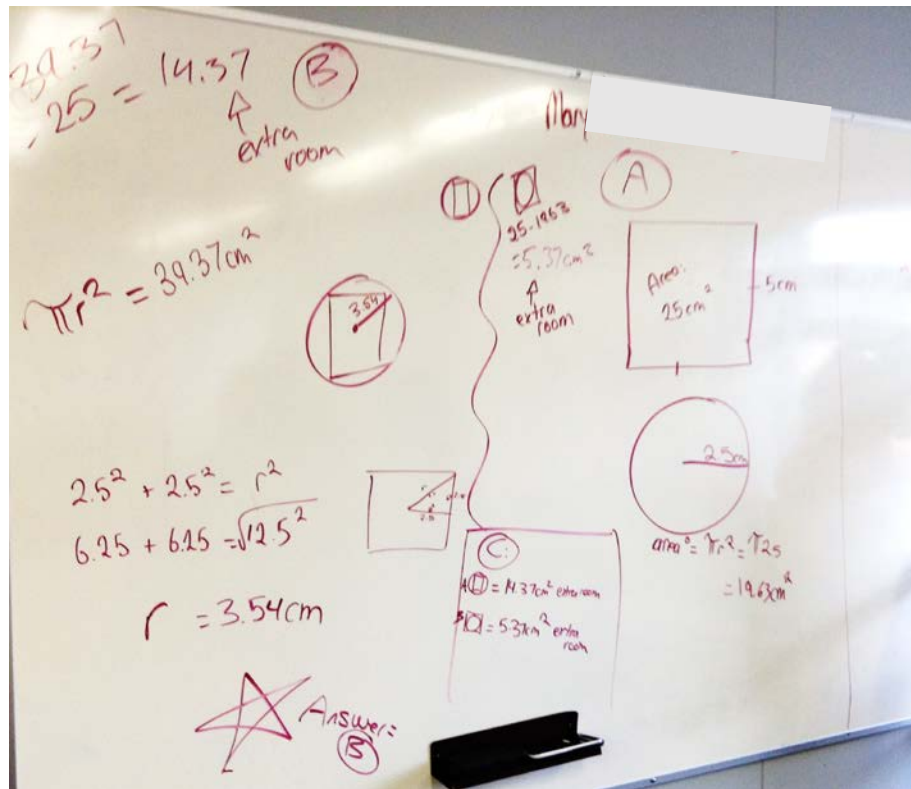 39.37
- 25 = 14.37 B
extra
room
πr² = 39.37cm²
3.54
2.5² + 2.5² = r²
6.25 + 6.25 = √12.5²
r = 3.54cm
r
2.5
Answer=
B
Mary
25-1963
=5.37cm²
extra
room
A
Area:
25cm²
5cm
2.5cm
area = πr² = π25
= 19.63cm²
C:
A = 14.37cm² extra room
B = 5.37cm² extra
room